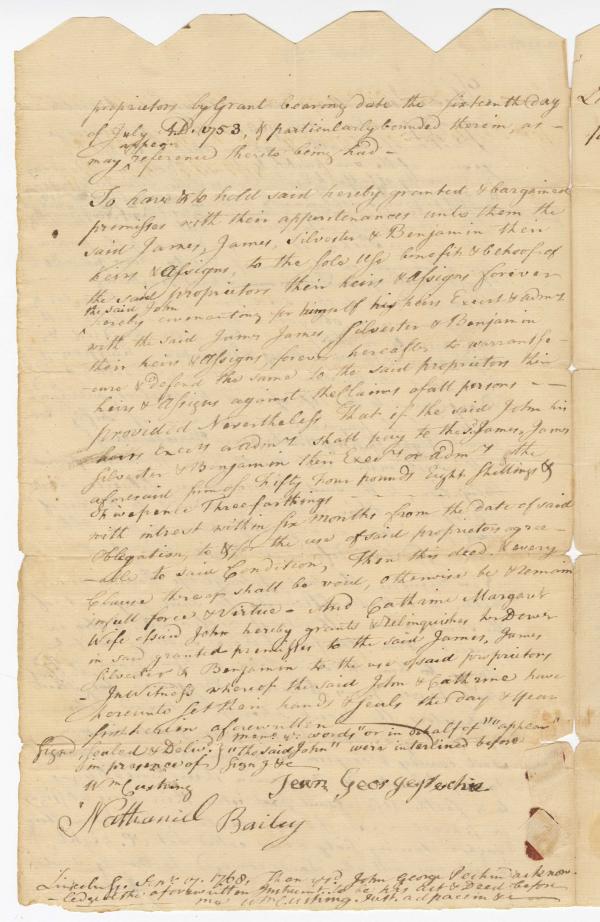 proprietors by Grant bearing date the sixteenth day
of July A.D. 1753, & particularly bounded therein, as
appear
may reference thereto being had —
To have & to hold said hereby granted & bargained
premisses with their appurtenances unto them the
said James, James, Silvester & Benjamin their
heirs & Assigns, to the sole use benefit & behoof of
the said proprietors their heirs & Assigns forever
the said John
hereby covenanting for himself his heirs Execrs & admrs
with the said James James, Silvester & Benjamin
their heirs & Assigns forever hereafter to warrant se-
cure & defend the same to the said proprietors their
heirs & Assigns against the Claims of all persons —
provided Nevertheless That if the said John his
heirs Execrs or admrs shall pay to the sd. James, James
Silvester & Benjamin their Execrs or admrs the
aforesaid sum of Fifty Four pounds Eight Shillings &
threefarthings
with intrest within six Months from the date of said
Obligation, to & for the use of said proprietors agree-
-able to said Condition, Then this deed, & every
Clause thereof shall be void, otherwise be & remain
in full force & Virtue — And Catharine Margaret
Wife of said John hereby grants & relinquishes her Dower
in said granted premisses to the said James, James
Silvester & Benjamin to the use of said proprietors
- In Witness whereof the said John & Catharine have
hereunto set their hands & seals the day & year
first herein aforewritten
words "or in behalf of" "appear"
Signd, sealed & Delivd. } "the said John" were interlined before
in presence of } Sign'g &c
Wm Cushing
Jean George Pechin
Nathaniel Bailey
Lincoln Ss. 1768. Then ye sd. John George Pechin acknow-
-ledged the aforewritten Instrumt. to be his act & Deed before
me Wm Cushing Just. ad pacem &c